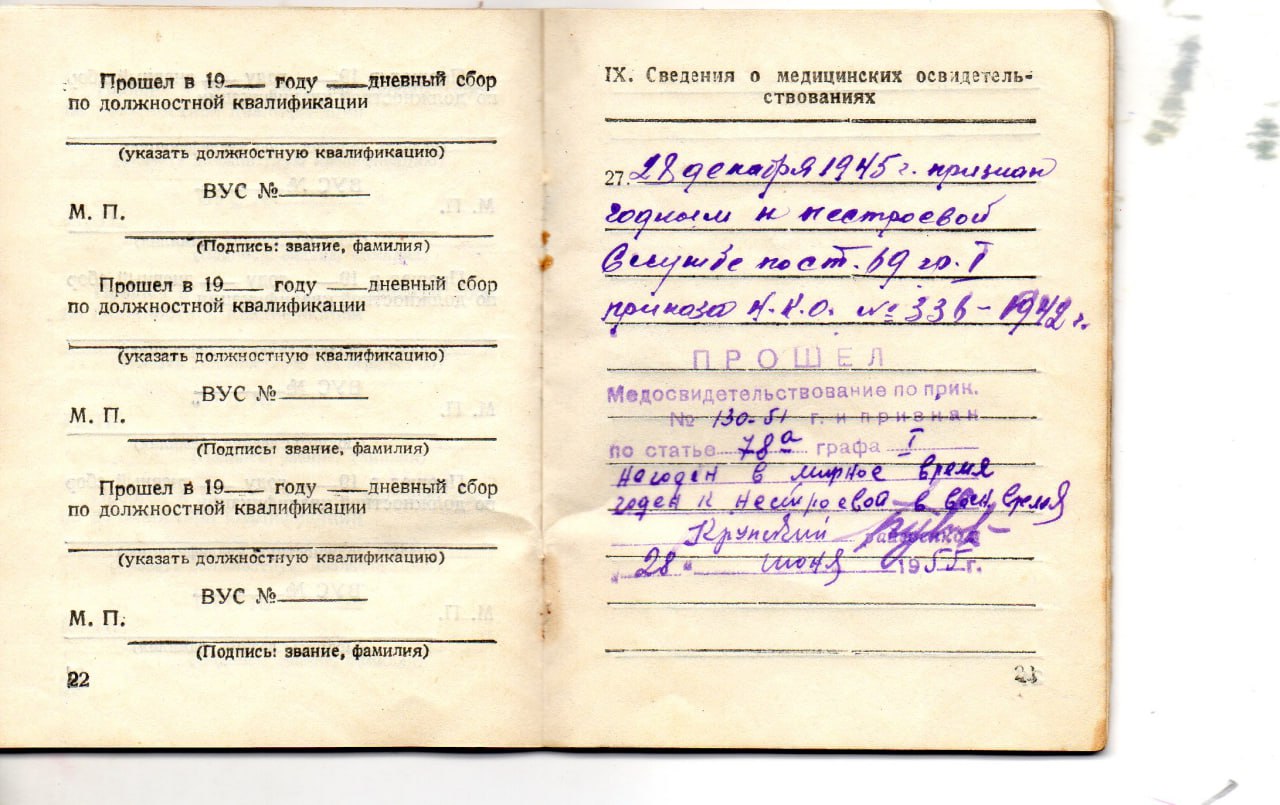 Прошел в 19___ году ___дневный сбор
по должностной квалификации
(указать должностную квалификацию)
ВУС №
М. П.
(Подпись: звание, фамилия)
Прошел в 19___ году ___дневный сбор
по должностной квалификации
(указать должностную квалификацию)
ВУС №
М. П.
(Подпись: звание, фамилия)
Прошел в 19___ году ___дневный сбор
по должностной квалификации
(указать должностную квалификацию)
ВУС №
М. П.
(Подпись: звание, фамилия)
22
IX. Сведения о медицинских освидетель-
ствованиях
27. 28 декабря 1945 г. признан
годным к нестроевой
службе по ст. 69 гр. I
приказа Н.К.О. № 336 - 1942 г.
ПРОШЕЛ
Медосвидетельствование по прик.
№ 130-51 г. и признан
по статье 78а графа I
Не годен в мирное время
годен к нестроевой в воен. время
Крупский райвоенком
„28" июня 1955 г.